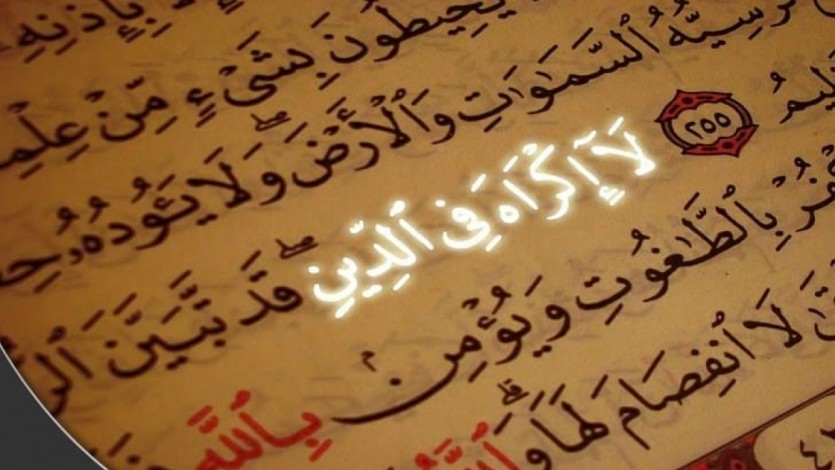 بِإِذْنِهِ
يُحِيطُونَ بِشَىْءٍ مِّنْ عِلْمِ
كُرْسِيُّهُ ٱلسَّمَٰوَٰتِ وَٱلْأَرْضَ ۖ وَلَا يَـُٔودُهُۥ حِ
ٱلْعَظِيمُ ٢٥٥ لَآ إِكْرَاهَ فِى ٱلدِّينِ ۖ قَد تَّبَيَّنَ ٱلر
فُرْ بِٱلطَّٰغُوتِ وَيُؤْمِنۢ بِٱللَّهِ
لَا ٱنفِصَامَ لَهَا ۗ وَٱللَّهُ